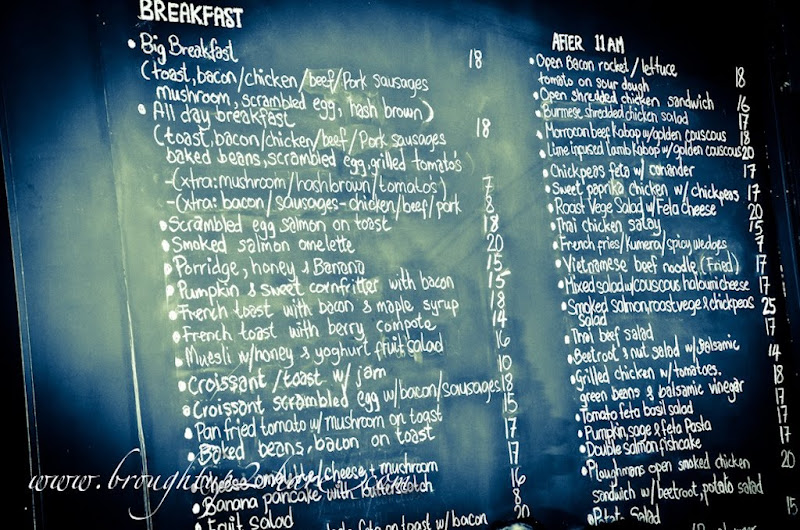 BREAKFAST
• Big Breakfast 18
(toast, bacon/chicken/beef/Pork sausages
mushroom, scrambled egg, hash brown)
• All day breakfast 18
(toast, bacon/chicken/beef/Pork sausages
baked beans, scrambled egg, grilled tomato's
-(xtra: mushroom/hashbrown/tomato's) 7
-(xtra: bacon/sausages-chicken/beef/pork 8
• Scrambled egg salmon on toast 18
• Smoked salmon omelette 20
• Porridge, honey & Banana 15
• Pumpkin & sweet cornfritter with bacon 15
• French toast with bacon & maple syrup 18
• French toast with berry compote 14
• Muesli w/honey & yoghurt fruit salad 16
• Croissant/toast w/ jam 10
• Croissant scrambled egg w/bacon/sausages 18
• Pan fried tomato w/ mushroom on toast 15
• Baked beans, bacon on toast 17
• Cheese omelette cheese + mushroom 17
• Banana pancake with butterscotch 16
• Fruit salad 8
feta on toast w/ bacon 20
AFTER 11AM
• Open Bacon rocket/lettuce
tomato on sour dough 18
• Open shredded chicken sandwich 16
• Burmese shredded chicken salad 17
• Morrocan beef Kabop w/golden couscous 18
• Lime infused lamb Kabop w/golden couscous 20
• Chickpeas feta w/ coriander 17
• Sweet paprika chicken w/ chickpeas 17
• Roast Vege Salad w/ Feta cheese 20
• Thai chicken satay 15
• French fries/kumera/spicy wedges 7
• Vietnamese beef noodle (Fried) 17
• Mixed salad w/couscous haloumi cheese 17
• Smoked salmon, roast vege & chickpeas 25
salad
• Thai beef salad 17
• Beetroot & nut salad w/ balsamic 14
• Grilled chicken w/tomatoes.
green beans & balsamic vinegar 18
• Tomato feta basil salad 17
• Pumpkin, sage & feta Pasta 17
• Double salmon fishcake 17
• Ploughmans open smoked chicken 20
sandwich w/ beetroot, potato salad
• Potato Salad 15